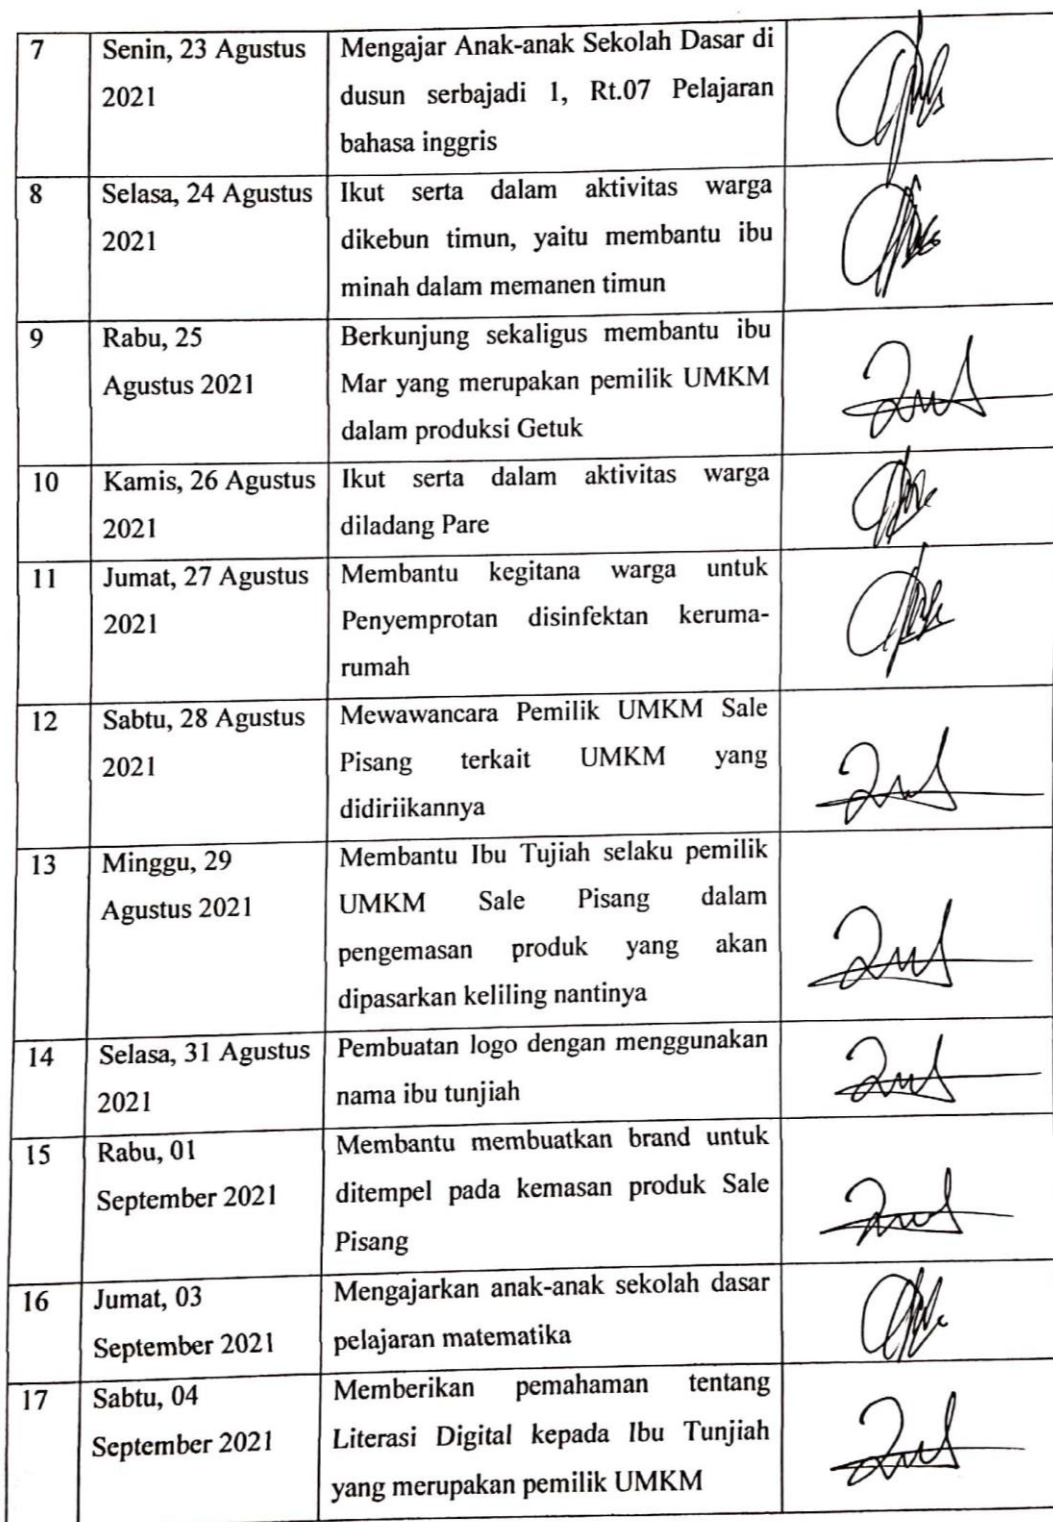 7 Senin, 23 Agustus Mengajar Anak-anak Sekolah Dasar di
2021 dusun serbajadi 1, Rt.07 Pelajaran
bahasa inggris
8 Selasa, 24 Agustus Ikut serta dalam aktivitas warga
2021 dikebun timun, yaitu membantu ibu
minah dalam memanen timun
9 Rabu, 25 Berkunjung sekaligus membantu ibu
Agustus 2021 Mar yang merupakan pemilik UMKM
dalam produksi Getuk
10 Kamis, 26 Agustus Ikut serta dalam aktivitas warga
2021 diladang Pare
11 Jumat, 27 Agustus Membantu kegitana warga untuk
2021 Penyemprotan disinfektan keruma-
rumah
12 Sabtu, 28 Agustus Mewawancara Pemilik UMKM Sale
2021 Pisang terkait UMKM yang
didiriikannya
13 Minggu, 29 Membantu Ibu Tujiah selaku pemilik
Agustus 2021 UMKM Sale Pisang dalam
pengemasan produk yang akan
dipasarkan keliling nantinya
14 Selasa, 31 Agustus Pembuatan logo dengan menggunakan
2021 nama ibu tunjiah
15 Rabu, 01 Membantu membuatkan brand untuk
September 2021 ditempel pada kemasan produk Sale
Pisang
16 Jumat, 03 Mengajarkan anak-anak sekolah dasar
September 2021 pelajaran matematika
17 Sabtu, 04 Memberikan pemahaman tentang
September 2021 Literasi Digital kepada Ibu Tunjiah
yang merupakan pemilik UMKM